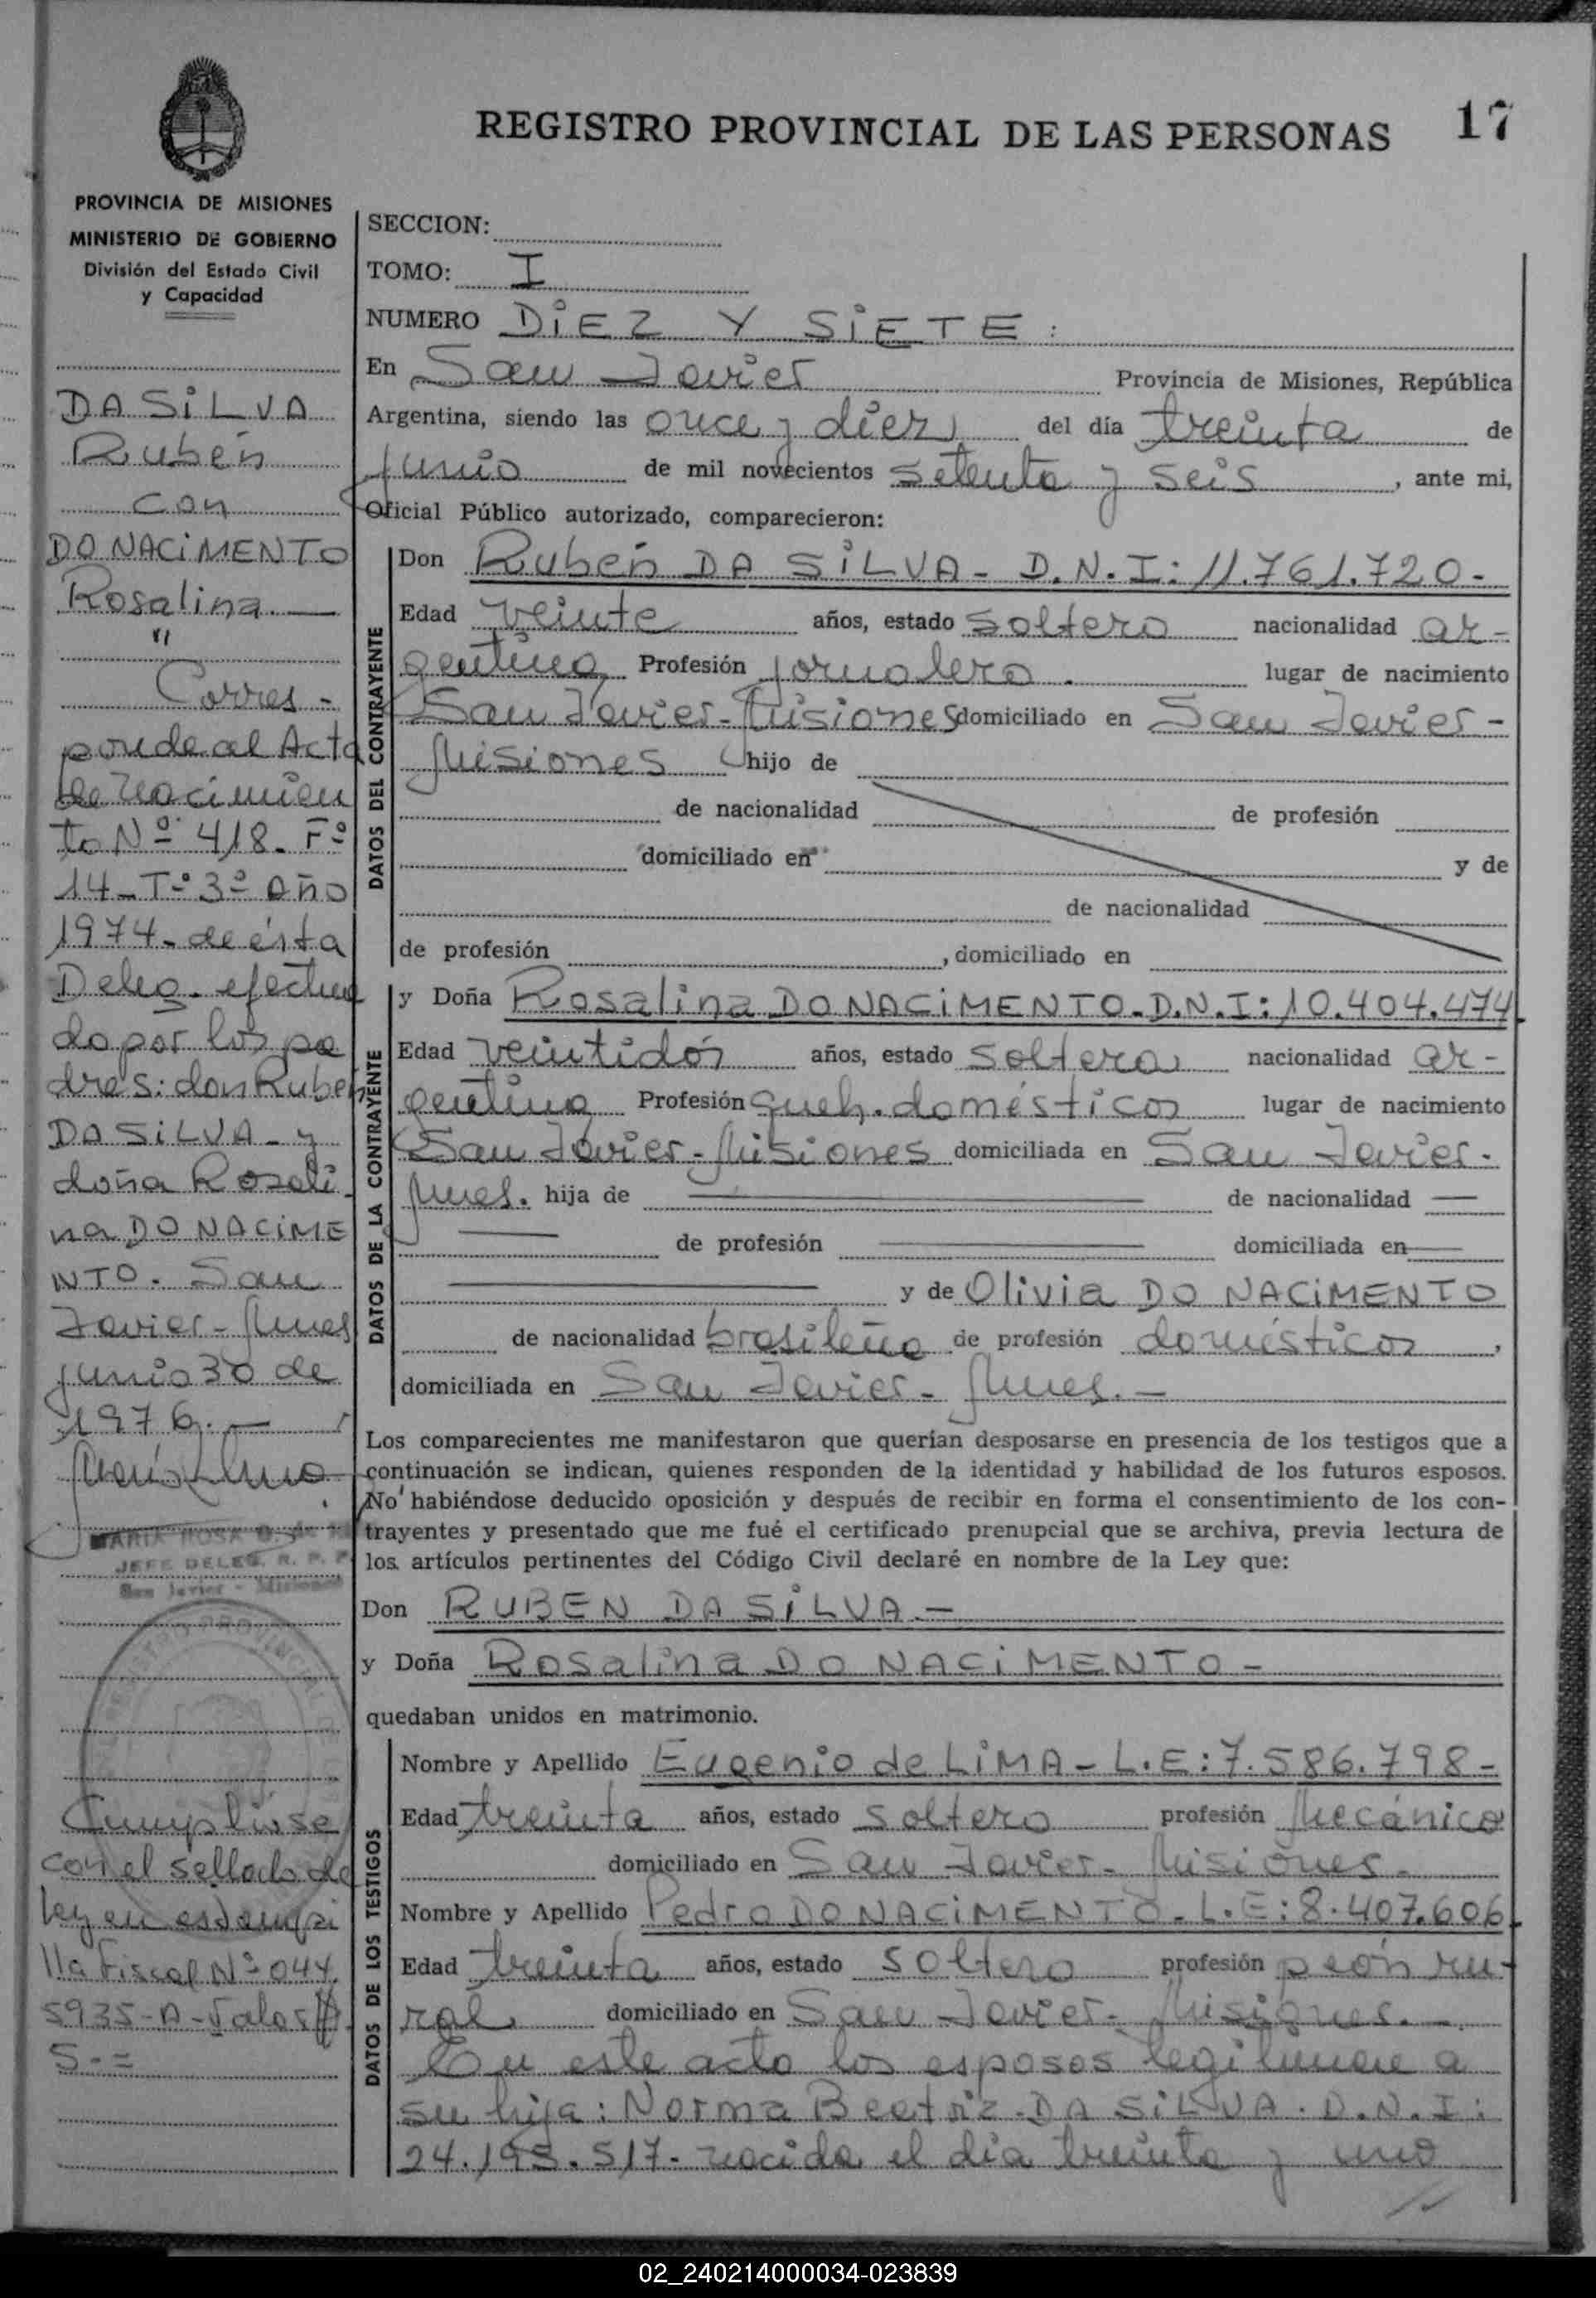 REGISTRO PROVINCIAL DE LAS PERSONAS 17
PROVINCIA DE MISIONES
MINISTERIO DE GOBIERNO
División del Estado Civil
y Capacidad
DA SiLVA
Rubén
con
DO NACiMENTO
Rosalina
"
Corres-
ponde al Acta
de nacimien
to Nº 418. Fº
14-Tº 3º año
1974- de ésta
Deleg. efectua
do por los pa
dres: don Rubén
DA SiLVA- y
doña Rosali
na DO NACiME
NTO. San
Javier-Mnes
junio 30 de
1976.-
MARIA ROSA
JEFE DELEG. R. P. P.
San Javier - Misiones
Cumplióse
con el sellado de
ley en estampi
lla Fiscal Nº 044.
5935-A-Valor $
5.=
SECCION:
TOMO: I
NUMERO DiEZ Y SiETE :
En San Javier Provincia de Misiones, República
Argentina, siendo las once y diez del día treinta de
junio de mil novecientos setenta y seis, ante mi,
Oficial Público autorizado, comparecieron:
DATOS DEL CONTRAYENTE
Don Rubén DA SiLVA- D.N.I: 11.761.720-
Edad veinte años, estado soltero nacionalidad ar-
gentina Profesión jornalero. lugar de nacimiento
San Javier-Misiones domiciliado en San Javier-
Misiones hijo de
de nacionalidad de profesión
domiciliado en y de
de nacionalidad
de profesión , domiciliado en
DATOS DE LA CONTRAYENTE
y Doña Rosalina DO NACiMENTO-D.N.I: 10.404.474
Edad veintidós años, estado soltera nacionalidad ar-
gentina Profesión queh. domésticos lugar de nacimiento
San Javier-Misiones domiciliada en San Javier-
Mnes. hija de de nacionalidad
de profesión domiciliada en
y de Olivia DO NACiMENTO
de nacionalidad brasileña de profesión domésticos,
domiciliada en San Javier- Mnes.-
Los comparecientes me manifestaron que querían desposarse en presencia de los testigos que a
continuación se indican, quienes responden de la identidad y habilidad de los futuros esposos.
No habiéndose deducido oposición y después de recibir en forma el consentimiento de los con-
trayentes y presentado que me fué el certificado prenupcial que se archiva, previa lectura de
los artículos pertinentes del Código Civil declaré en nombre de la Ley que:
Don RUBEN DA SiLVA-
y Doña Rosalina DO NACiMENTO-
quedaban unidos en matrimonio.
DATOS DE LOS TESTIGOS
Nombre y Apellido Eugenio de LiMA- L.E: 7.586.798-
Edad treinta años, estado soltero profesión Mecánico
domiciliado en San Javier- Misiones-
Nombre y Apellido Pedro DO NACiMENTO-L.E: 8.407.606
Edad treinta años, estado soltero profesión peón ru-
ral domiciliado en San Javier- Misiones.-
En este acto los esposos legitiman a
su hija: Norma Beatriz-DA SiLVA. D.N.I:
24.195.517- nacida el día treinta y uno
02_240214000034-023839